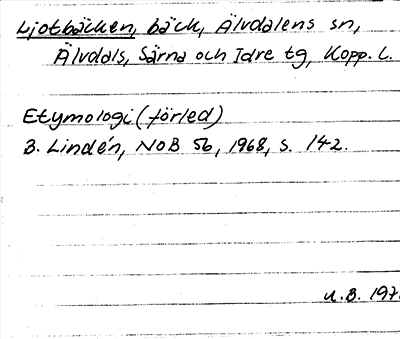 Ljotbäcken, bäck, Älvdalens sn,
Älvdals, Särna och Idre tg, Kopp. l.
Etymologi (förled)
B. Lindén, NoB 56, 1968, s. 142.
U.B. 197